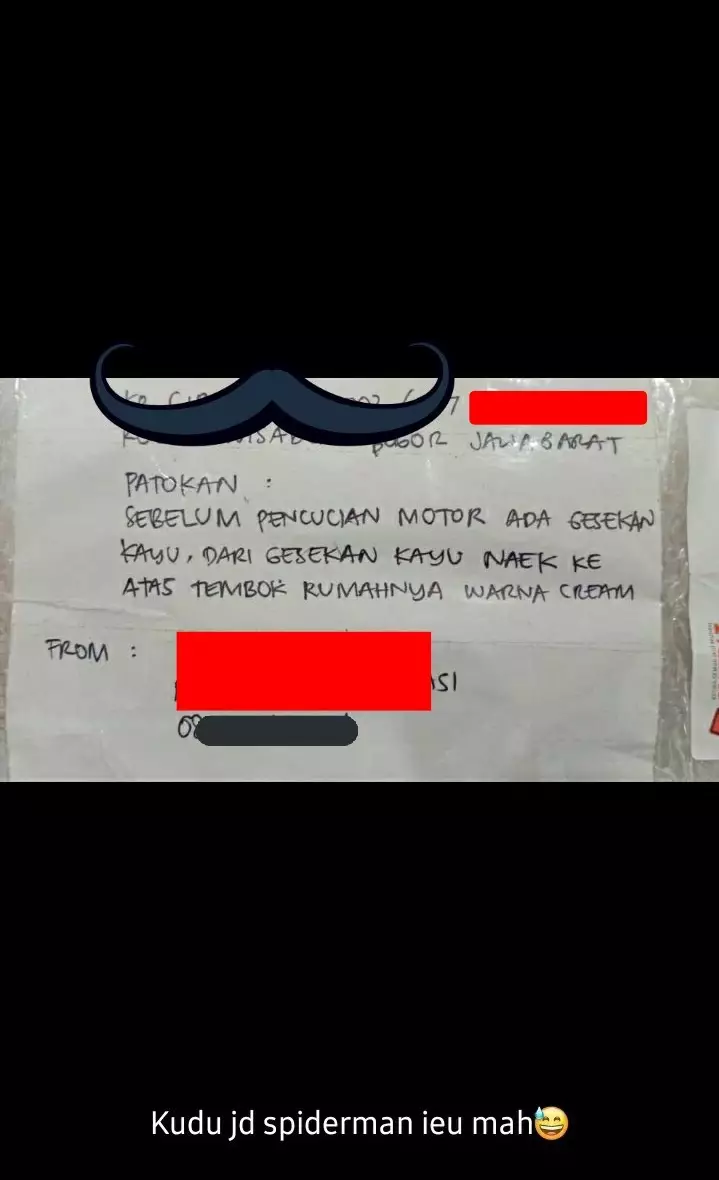 BOGOR JAWA BARAT
PATOKAN :
SEBELUM PENCUCIAN MOTOR ADA GESEKAN
KAYU, DARI GESEKAN KAYU NAEK KE
ATAS TEMBOK RUMAHNYA WARNA CREAM
FROM :
Kudu jd spiderman ieu mah😅